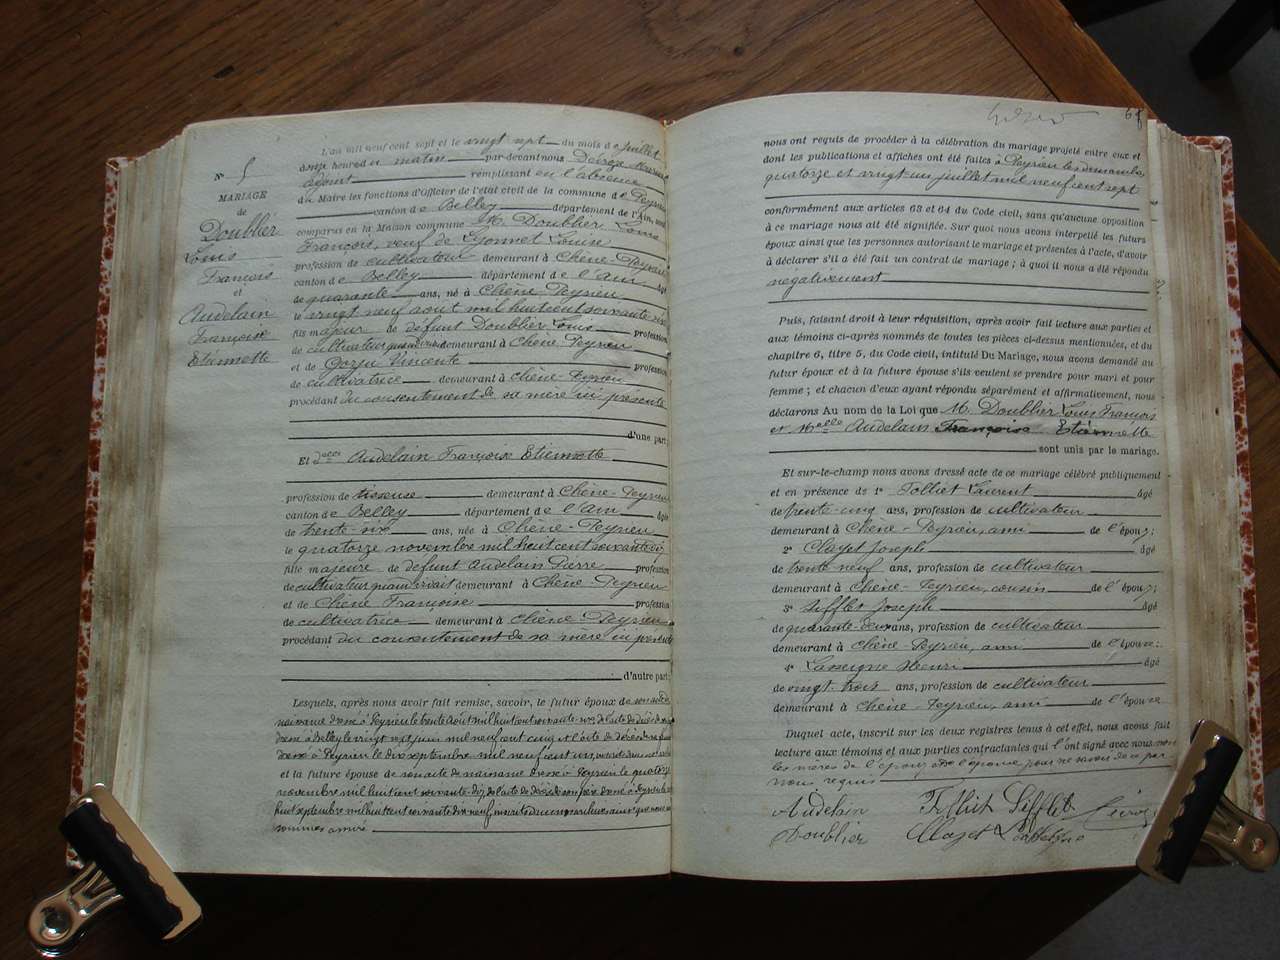 N° 5
MARIAGE
de
Doublier
Louis
François
et
Audelain
Françoise
Etiennette
L'an mil neuf cent sept et le vingt sept du mois de juillet
heures du matin par-devant nous
adjoint remplissant en l'absence
du Maire les fonctions d'Officier de l'état civil de la commune de Peyrieu
canton de Belley département de l'Ain, sont
comparus en la Maison commune M. Doublier Louis
François, veuf de Lyonnet Louise
profession de cultivateur demeurant à Chêne-Peyrieu
canton de Belley département de l'Ain âgé
de quarante ans, né à Chêne Peyrieu
le vingt neuf aout mil huit cent soixante six
fils majeur de défunt Doublier Louis profession
de cultivateur demeurant à Chêne Peyrieu
et de Vincente profession
de cultivatrice demeurant à Chêne Peyrieu
procédant du consentement de sa mère ici présente
d'une part
Et delle Audelain Françoise Etiennette
profession de tisseuse demeurant à Chêne-Peyrieu
canton de Belley département de l'Ain âgée
de trente-six ans, née à Chêne-Peyrieu
le quatorze novembre mil huit cent soixante dix
fille majeure de défunt Audelain Pierre profession
de cultivateur quand vivait demeurant à Chêne-Peyrieu
et de Chêne Françoise profession
de cultivatrice demeurant à Chêne Peyrieu
procédant du consentement de sa mère ici présente
d'autre part
Lesquels, après nous avoir fait remise, savoir, le futur époux de son acte de
naissance dressé à Peyrieu le trente aout mil huit cent soixante six, de l'acte de décès de
dressé à Belley le vingt sept juin mil neuf cent cinq et l'acte de décès de
dressé à Peyrieu le dix septembre mil neuf cent
et la future épouse de son acte de naissance dressé à Peyrieu le quatorze
novembre mil huit cent soixante-dix, de l'acte de décès de son père dressé à Peyrieu le
huit septembre mil huit cent soixante dix neuf, ainsi que nous nous
sommes assuré
61
nous ont requis de procéder à la célébration du mariage projeté entre eux et
dont les publications et affiches ont été faites à Peyrieu les dimanches
quatorze et vingt un juillet mil neuf cent sept
conformément aux articles 63 et 64 du Code civil, sans qu'aucune opposition
à ce mariage nous ait été signifiée. Sur quoi nous avons interpellé les futurs
époux ainsi que les personnes autorisant le mariage et présentes à l'acte, d'avoir
à déclarer s'il a été fait un contrat de mariage ; à quoi il nous a été répondu
négativement
Puis, faisant droit à leur réquisition, après avoir fait lecture aux parties et
aux témoins ci-après nommés de toutes les pièces ci-dessus mentionnées, et du
chapitre 6, titre 5, du Code civil, intitulé Du Mariage, nous avons demandé au
futur époux et à la future épouse s'ils veulent se prendre pour mari et pour
femme ; et chacun d'eux ayant répondu séparément et affirmativement, nous
déclarons Au nom de la Loi que M. Doublier Louis François
et Melle Audelain Françoise Etiennette
sont unis par le mariage.
Et sur-le-champ nous avons dressé acte de ce mariage célébré publiquement
et en présence de 1° Tolliet Laurent âgé
de trente-cinq ans, profession de cultivateur
demeurant à Chêne-Peyrieu, ami de l'époux ;
2° Clazet Joseph âgé
de trente neuf ans, profession de cultivateur
demeurant à Chêne-Peyrieu, cousin de l'époux ;
3° Sifflet Joseph âgé
de quarante-deux ans, profession de cultivateur
demeurant à Chêne-Peyrieu, ami de l'épouse ;
4° Lasseigne Henri âgé
de vingt trois ans, profession de cultivateur
demeurant à Chêne-Peyrieu, ami de l'épouse
Duquel acte, inscrit sur les deux registres tenus à cet effet, nous avons fait
lecture aux témoins et aux parties contractantes qui l'ont signé avec nous non
les mères de l'époux et de l'épouse pour ne savoir de ce par
nous requis
Audelain Tolliet Sifflet
Doublier Clazet Lasseigne